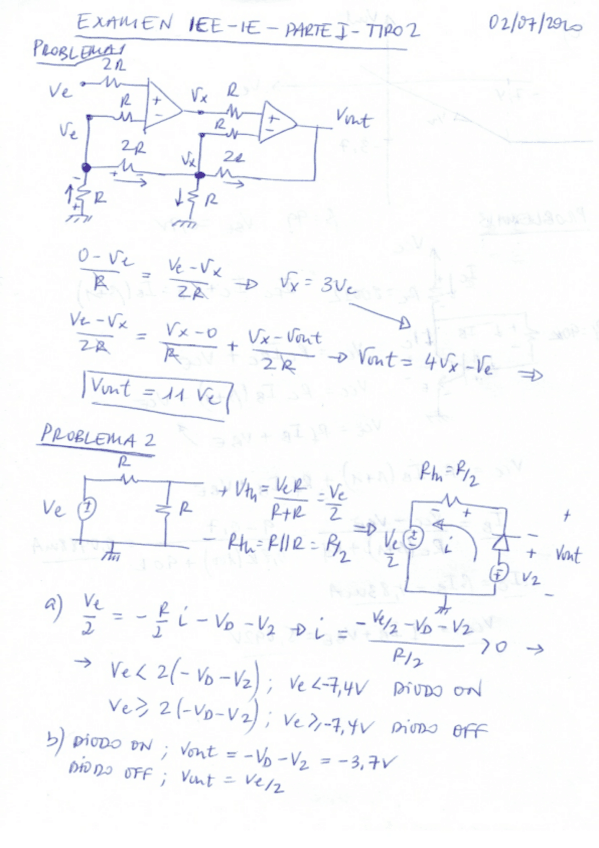 EXAMEN IEE-IE-PARTE I-TIPO 2 02/07/2020
PROBLEMA 1
2R
Ve
R
+
-
Vx
R
R
+
-
Vout
Ve
2R
Vx
2R
R
R
0-Ve/R = Ve-Vx/2R → Vx = 3Ve
Ve-Vx/2R = Vx-0/R + Vx-Vout/2R → Vout = 4Vx-Ve ⇒
Vout = 11 Ve
PROBLEMA 2
R
Ve
R
+ Vth = VeR/R+R = Ve/2
- Rth = R||R = R/2
⇒
Rth = R/2
Ve/2
i
- +
V2
+ Vout -
a) Ve/2 = - R/2 i - VD - V2 → i = -Ve/2 - VD - V2/R/2 > 0 →
→ Ve < 2(-VD-V2) ; Ve < -7,4V DIODO ON
Ve ≥ 2(-VD-V2) ; Ve ≥ -7,4V DIODO OFF
b) DIODO ON ; Vout = -VD - V2 = -3,7V
DIODO OFF ; Vout = Ve/2